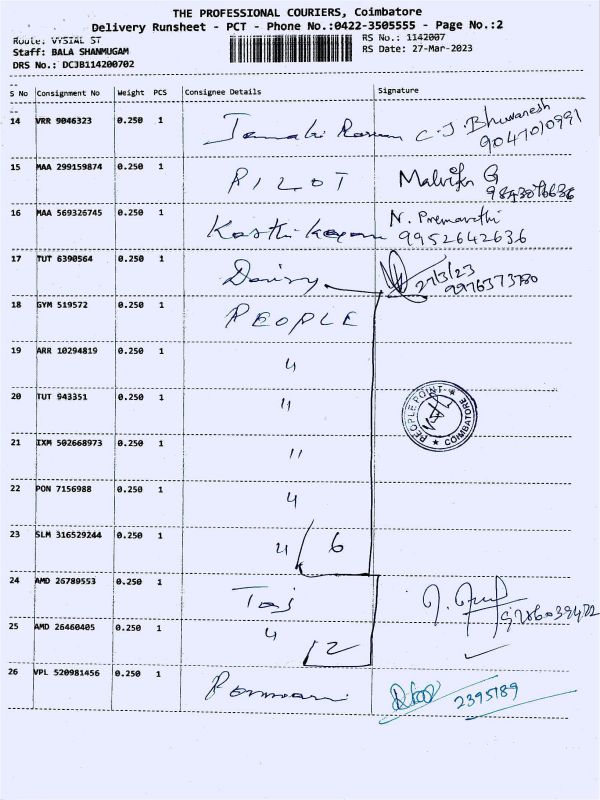 THE PROFESSIONAL COURIERS, Coimbatore
Delivery Runsheet - PCT - Phone No.:0422-3505555 - Page No.:2
Route: VYSIAL ST RS No.: 1142007
Staff: BALA SHANMUGAM RS Date: 27-Mar-2023
DRS No.: DCJB114200702
S No Consignment No Weight PCS Consignee Details Signature
14 VRR 9046323 0.250 1 C.J. Bhuvanesh
9047010991
15 MAA 299159874 0.250 1 PILOT Malvika G
16 MAA 569326745 0.250 1 N. Premavathi
9952642636
17 TUT 6390564 0.250 1 Daisy 27/3/23
9976373780
18 GYM 519572 0.250 1 PEOPLE
19 ARR 10294819 0.250 1 "
20 TUT 943351 0.250 1 "
PEOPLE POINT ★ COIMBATORE ★
21 IXM 502668973 0.250 1 "
22 PON 7156988 0.250 1 "
23 SLM 316529244 0.250 1 " 6
24 AMD 26789553 0.250 1 Taj
25 AMD 26460405 0.250 1 " 2
26 VPL 520981456 0.250 1 2395189